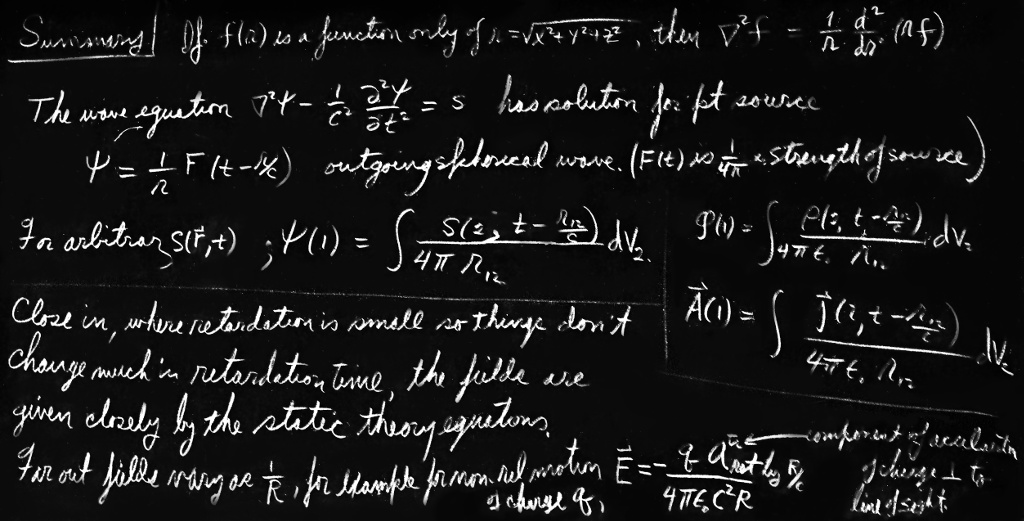 Summary | If f(r) is a function only of r = √x²+y²+z², then ∇²f = 1/r d²/dr² (rf)
The wave equation ∇²Ψ - 1/c² ∂²Ψ/∂t² = s has solution for pt source
Ψ = 1/r F(t-r/c) outgoing spherical wave. (F(t) is 1/4π × strength of source)
For arbitrary S(r⃗,t) ; Ψ(1) = ∫ S(2, t - r₁₂/c) / 4π r₁₂ dV₂.
φ(1) = ∫ ρ(2, t - r₁₂/c) / 4πε₀ r₁₂ dV₂
A⃗(1) = ∫ j⃗(2, t - r₁₂/c) / 4πε₀ r₁₂ dV₂
Close in, where retardation is small so things don't
change much in retardation time, the fields are
given closely by the static theory equations.
Far out fields vary as 1/R, for example for non rel motion
of charge q,
E⃗ = - q a ret by R/c / 4πε₀c²R
component of acceleration
of charge ⊥ to
line of sight.